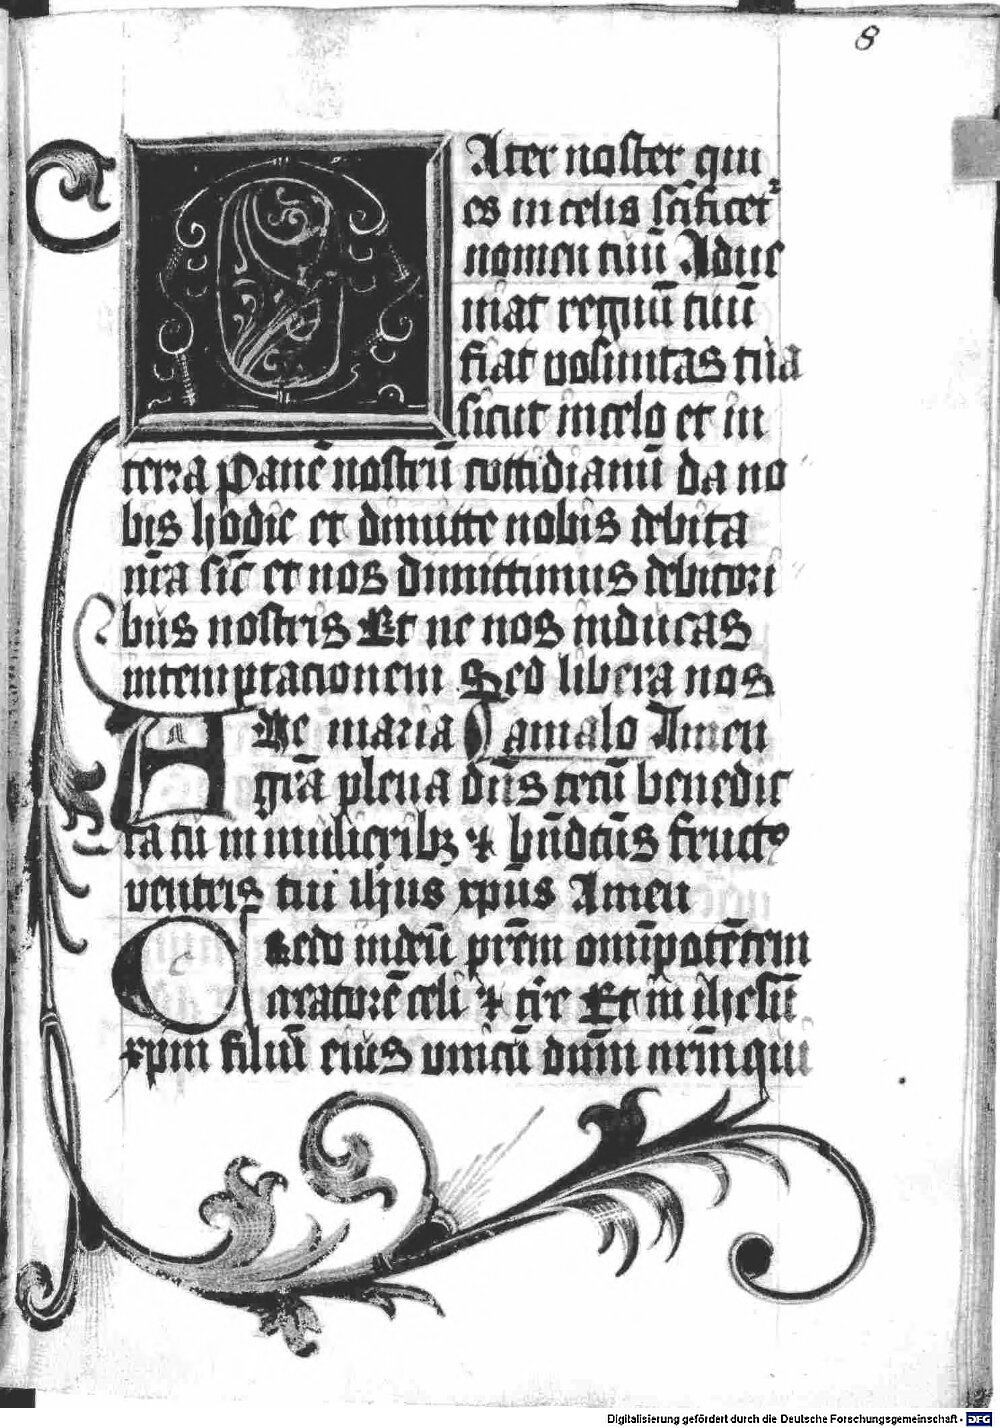 8
PAter noster qui
es in celis sc̄ificet᷑
nomen tuū Adue
niat regnuū tuū
fiat voluntas tua
sicut in celo et in
terra Panē nostrū cottidianū da no
bis hodie et dimitte nobis debita
nr̄a sic̄ et nos dimittimus debitori
bus nostris Et ne nos inducas
in temptacionem Sed libera nos
AVe maria a malo Amen
grā plena dn̄s tecū benedic
ta tu in mulieribꝫ ⁊ bn̄dc̄us fructꝰ
ventris tui ih̄us xp̄us Amen
Credo in deū prēm omīpotētem
creatorē celi ⁊ tr̄e Et in ih̄esū
xp̄m filiū eius vnicū dn̄m nr̄m qui
Digitalisierung gefördert durch die Deutsche Forschungsgemeinschaft - DFG